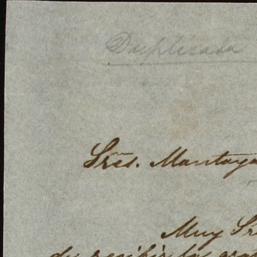 Duplicada
Sres. Mantoya
Muy Sr
de recibir los